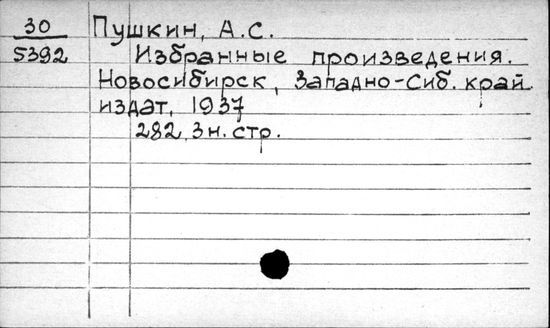 30 Пушкин, А.С.
5392 Избранные произведения.
Новосибирск, Западно-Сиб. край
издат, 1937
282, 3н. стр.